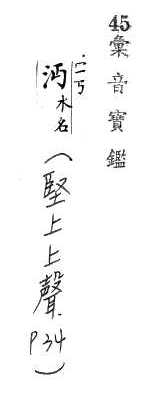 45 彙音寶鑑
沔 水名
(堅上上聲. P34)